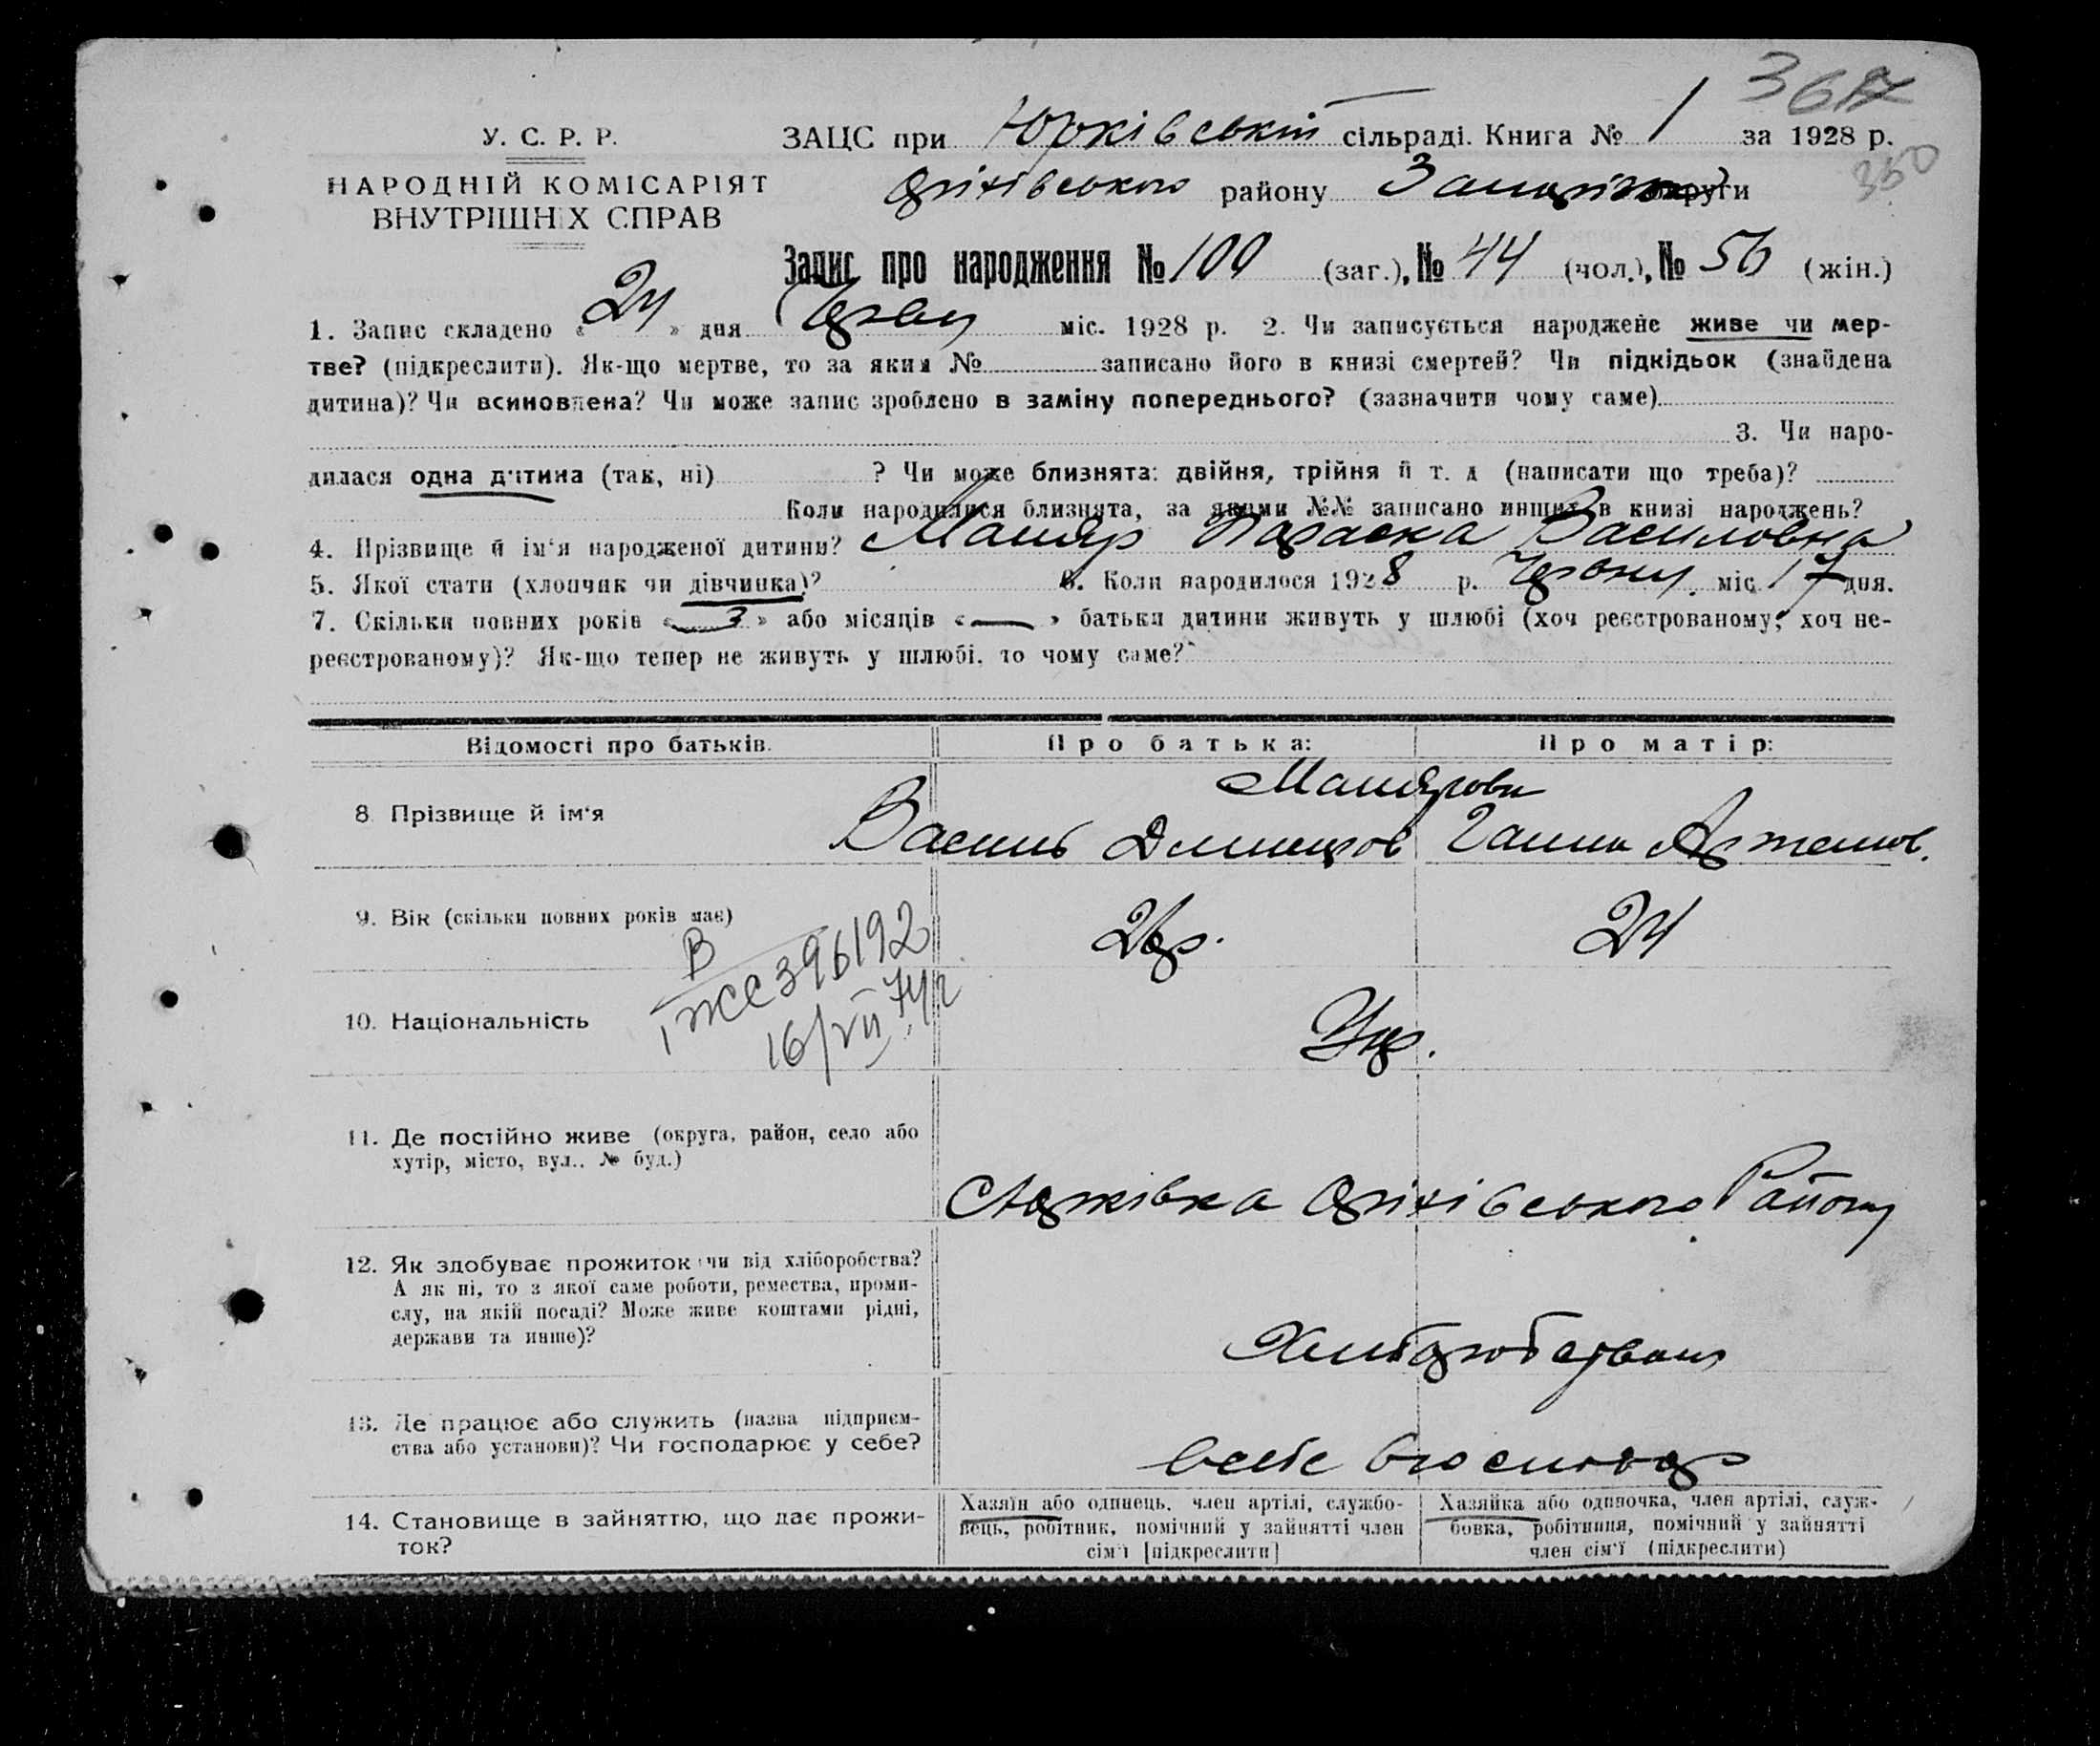 367
У. С. Р. Р.
НАРОДНІЙ КОМІСАРІЯТ
ВНУТРІШНІХ СПРАВ
ЗАЦС при Юрківській сільраді. Книга № 1 за 1928 р.
350
Оріхівського району Запоріжжя округи
Запис про народження № 100 (заг.), № 44 (чол.), № 56 (жін.)
1. Запис складено « 24 » дня Червн міс. 1928 р. 2. Чи записується народжене живе чи мер-
тве? (підкреслити). Як-що мертве, то за яким № записано його в книзі смертей? Чи підкідьок (знайдена
дитина)? Чи всиновлена? Чи може запис зроблено в заміну попереднього? (зазначити чому саме)
3. Чи наро-
дилася одна дитина (так, ні) ? Чи може близнята: двійня, трійня й т. д (написати що треба)?
Коли народилися близнята, за якими №№ записано инших в книзі народжень?
4. Прізвище й ім'я народженої дитини? Маляр Параска Василовна
5. Якої стати (хлопчик чи дівчинка)? 6. Коли народилося 1928 р. Червню міс 17 дня.
7. Скільки повних років « 3 » або місяців « — » батьки дитини живуть у шлюбі (хоч реєстрованому, хоч не-
реєстрованому)? Як-що тепер не живуть у шлюбі, то чому саме?
Відомості про батьків. Про батька: Про матір:
Малярови
8 Прізвище й ім'я Василь Дмитров Ганна Артемов.
9. Вік (скільки повних років має) 26р. 24
В
1 ЖС 396192
16/VII 74р
10. Національність Укр.
11. Де постійно живе (округа, район, село або
хутір, місто, вул.. № буд.)
С Юрківка Оріхівського Району
12. Як здобуває прожиток чи від хліборобства?
А як ні, то з якої саме роботи, ремества, проми-
слу, на якій посаді? Може живе коштами рідні,
держави та инше)?
Хліборобством
13. Де працює або служить (назва підприєм-
ства або установи)? Чи господарює у себе?
всебе
14. Становище в зайняттю, що дає прожи-
ток?
Хазяїн або одинець, член артілі, службо-
вець, робітник, помічний у зайнятті член
сім'ї [підкреслити]
Хазяйка або одиночка, член артілі, служ-
бовка, робітниця, помічний у зайнятті
член сім'ї (підкреслити)